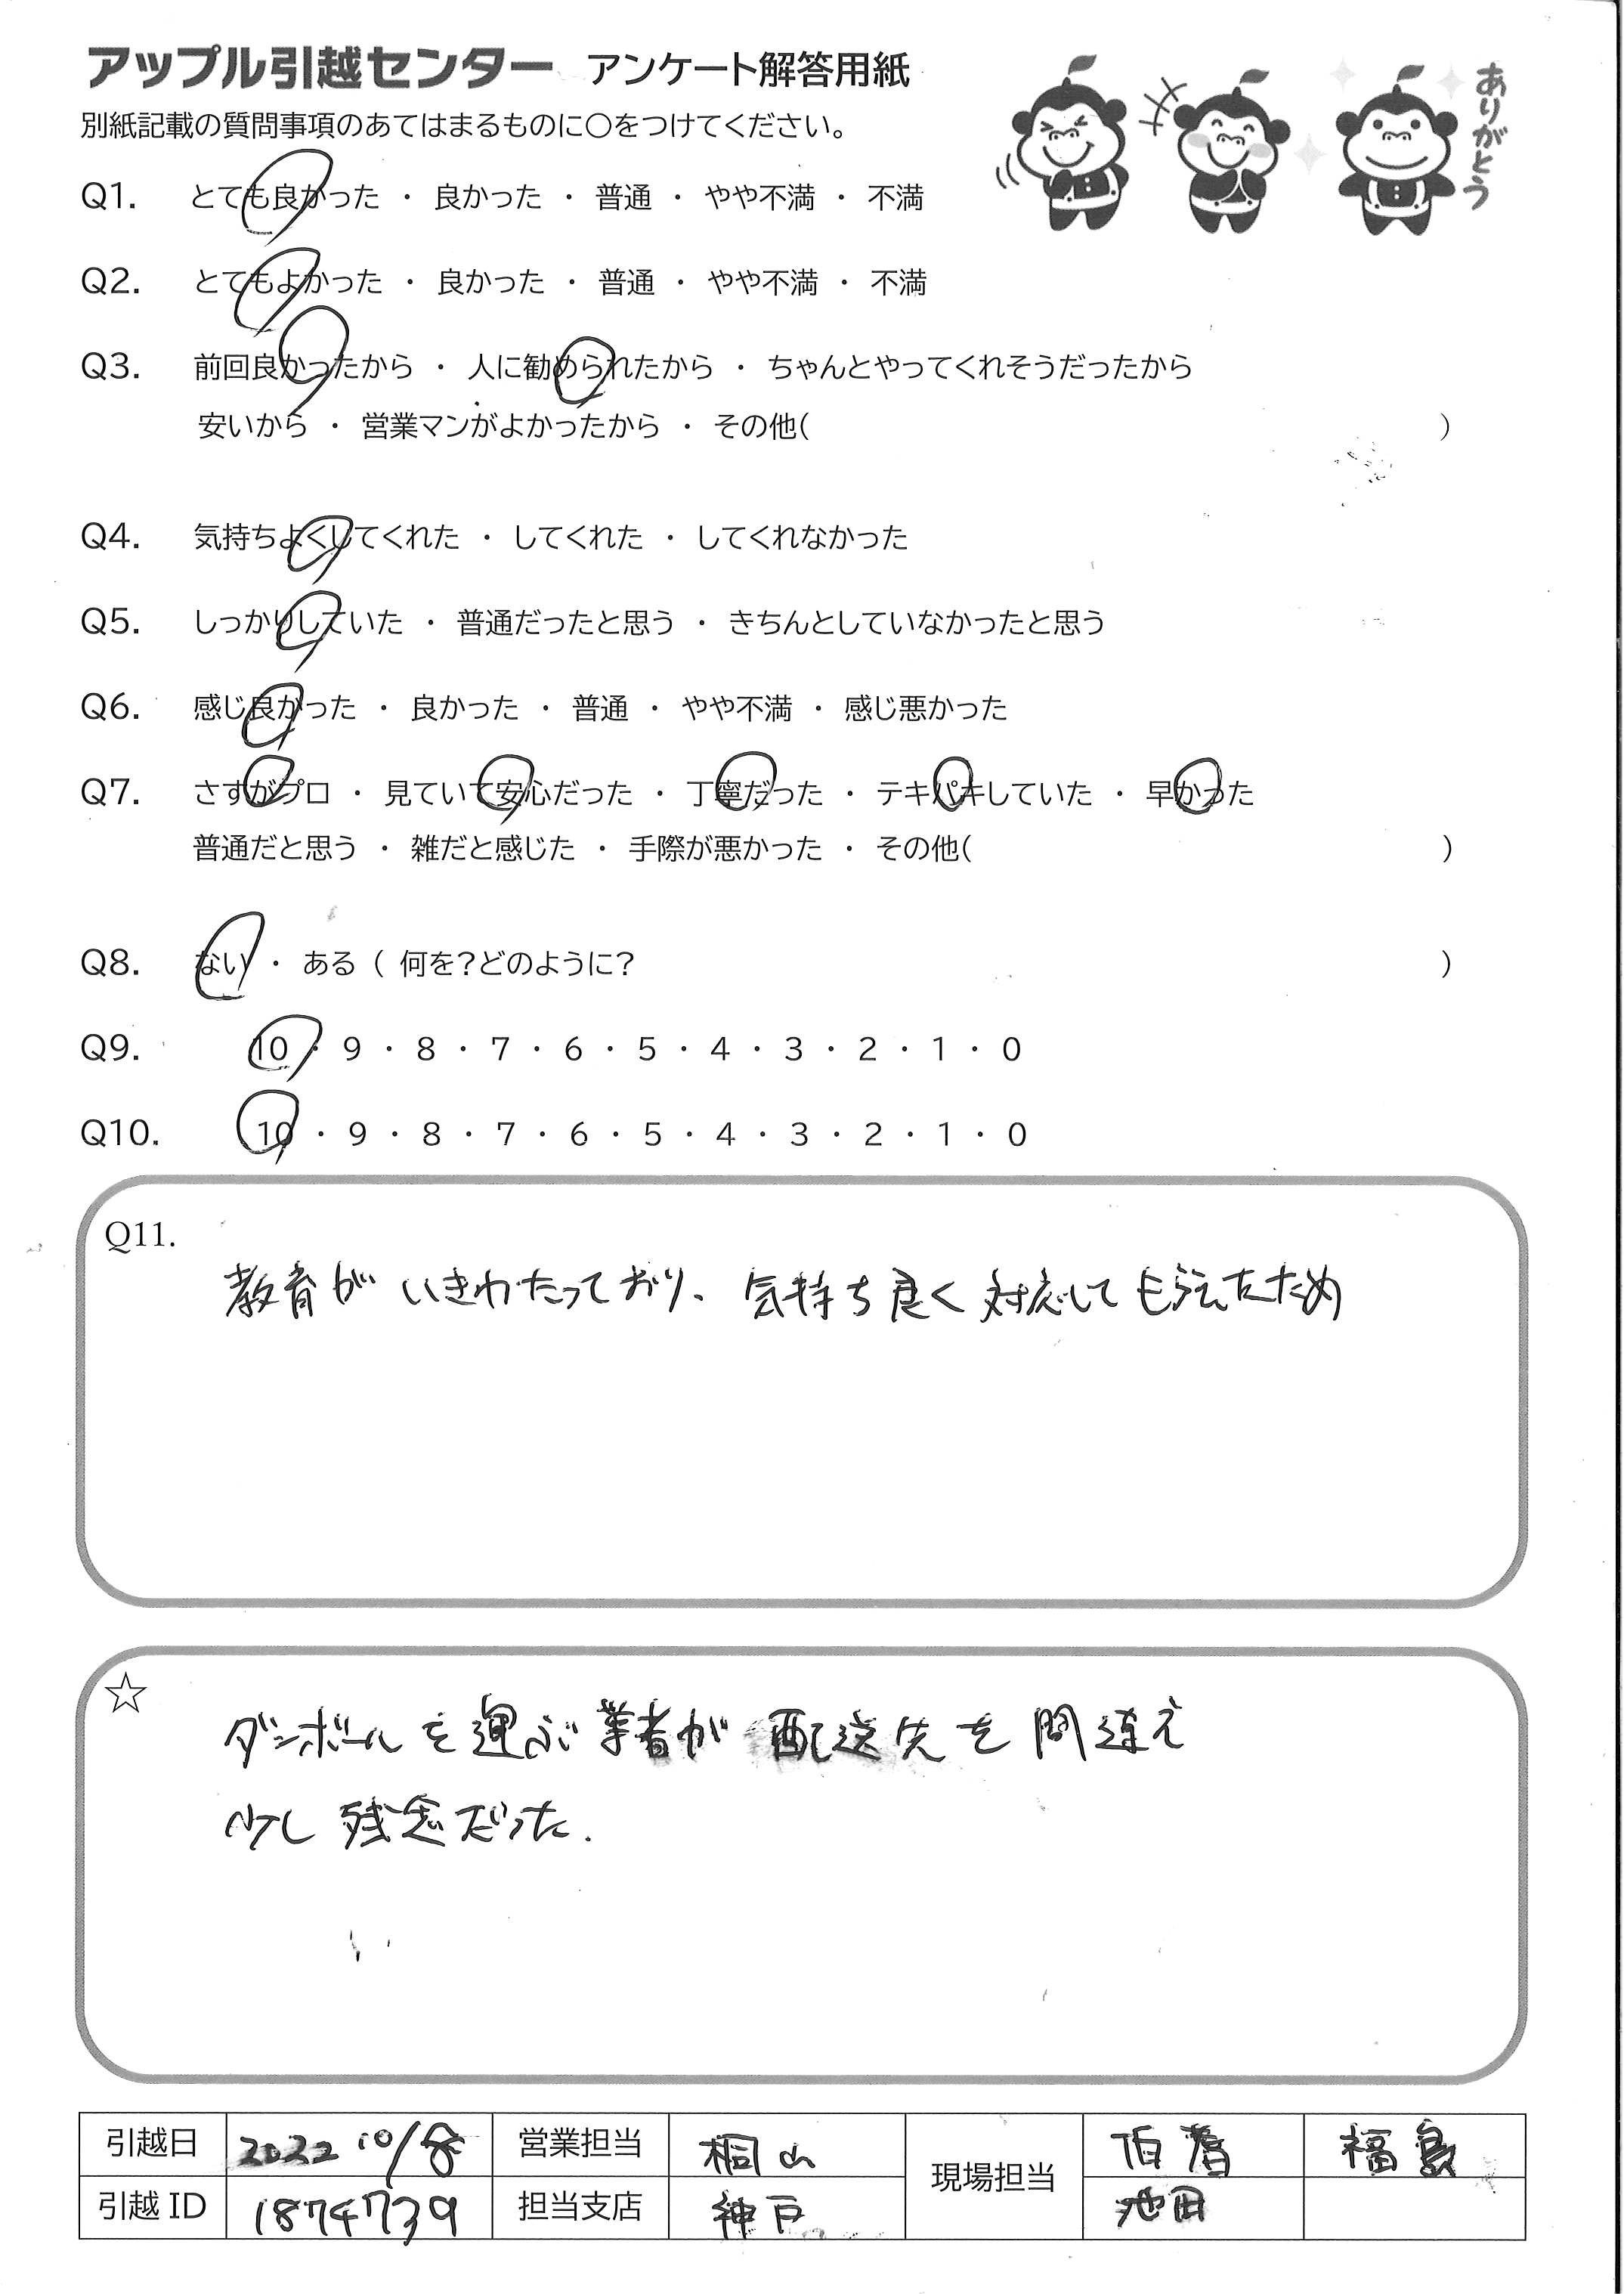 アップル引越センター アンケート解答用紙
ありがとう
別紙記載の質問事項のあてはまるものに○をつけてください。
Q1. とても良かった ・ 良かった ・ 普通 ・ やや不満 ・ 不満
Q2. とてもよかった ・ 良かった ・ 普通 ・ やや不満 ・ 不満
Q3. 前回良かったから ・ 人に勧められたから ・ ちゃんとやってくれそうだったから
安いから ・ 営業マンがよかったから ・ その他( )
Q4. 気持ちよくしてくれた ・ してくれた ・ してくれなかった
Q5. しっかりしていた ・ 普通だったと思う ・ きちんとしていなかったと思う
Q6. 感じ良かった ・ 良かった ・ 普通 ・ やや不満 ・ 感じ悪かった
Q7. さすがプロ ・ 見ていて安心だった ・ 丁寧だった ・ テキパキしていた ・ 早かった
普通だと思う ・ 雑だと感じた ・ 手際が悪かった ・ その他( )
Q8. ない ・ ある ( 何を?どのように? )
Q9. 10 ・ 9 ・ 8 ・ 7 ・ 6 ・ 5 ・ 4 ・ 3 ・ 2 ・ 1 ・ 0
Q10. 10 ・ 9 ・ 8 ・ 7 ・ 6 ・ 5 ・ 4 ・ 3 ・ 2 ・ 1 ・ 0
Q11.
教育がいきわたっており、気持ち良く対応してもらえたため
☆
ダンボールを運ぶ業者が配送先を間違え
少し残念だった.
引越日 2022 10/8 営業担当 桐山 現場担当 伯耆 福島
引越ID 1874739 担当支店 神戸 池田